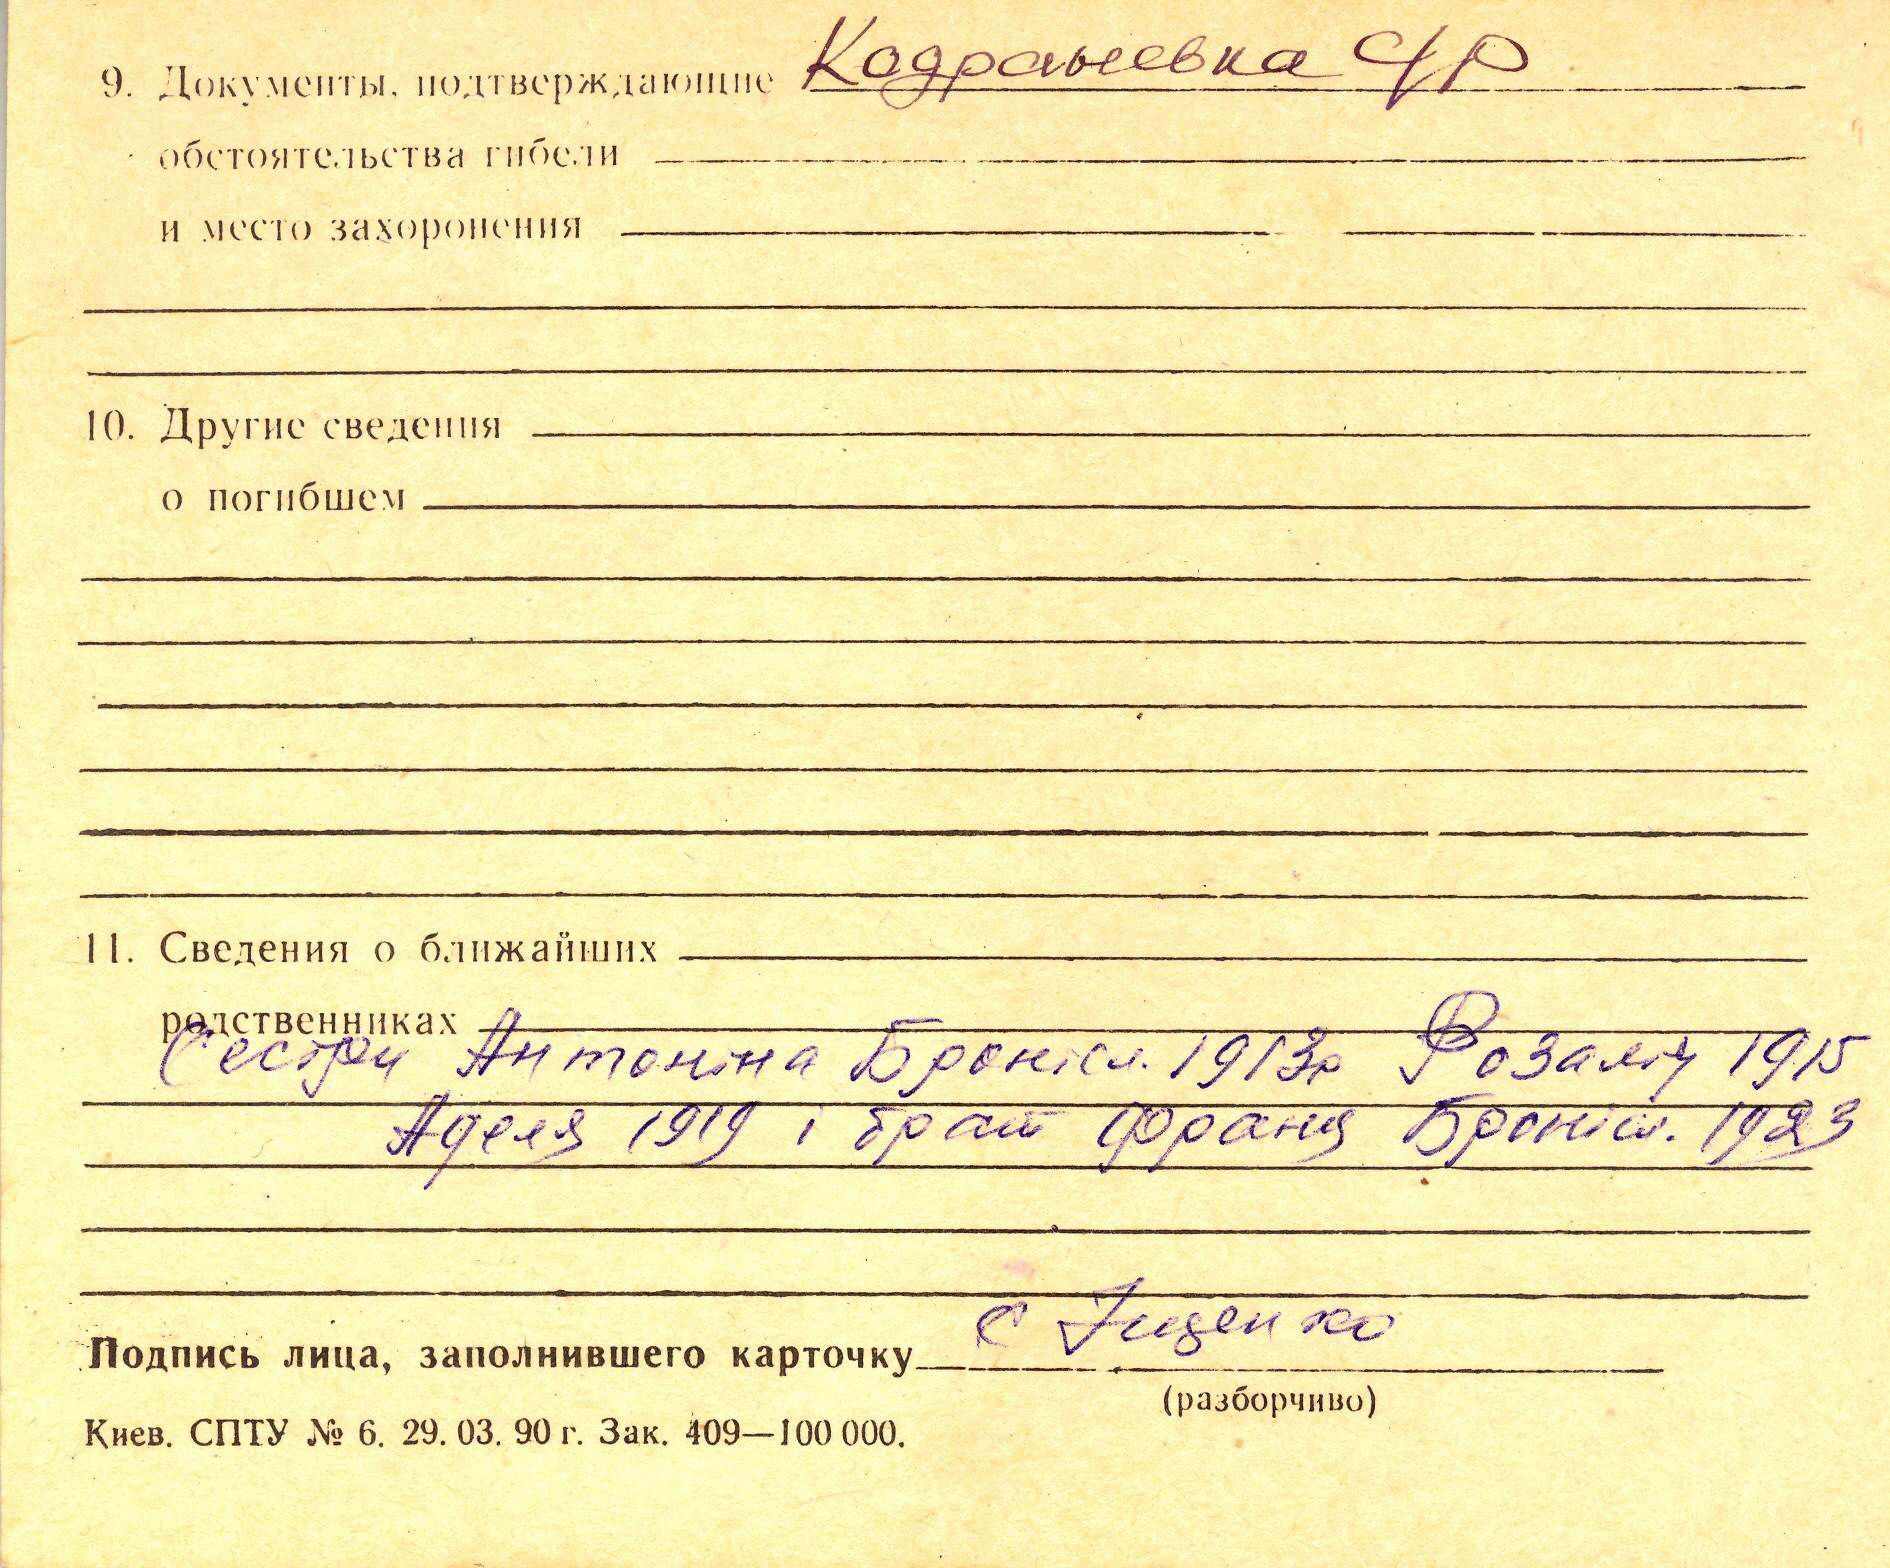 9. Документы, подтверждающие Кодраньевка С/Р
обстоятельства гибели
и место захоронения
10. Другие сведения
о погибшем
11. Сведения о ближайших
родственниках
Сестри Антоніна Бронісл. 1913р Розалія 1915
Аделя 1919 і брат Франц Бронісл. 1923
Подпись лица, заполнившего карточку С
(разборчиво)
Киев. СПТУ № 6. 29. 03. 90 г. Зак. 409—100 000.